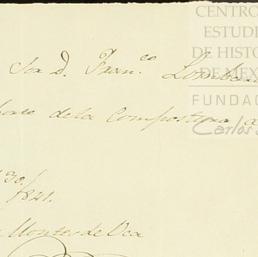 CENTRO
ESTUDI
DE HISTO
DE MÉX
FUNDAC
Carlos
Sor D. Fran.co Lomba
de la Compostura
30/
1821.
Montes de Oca